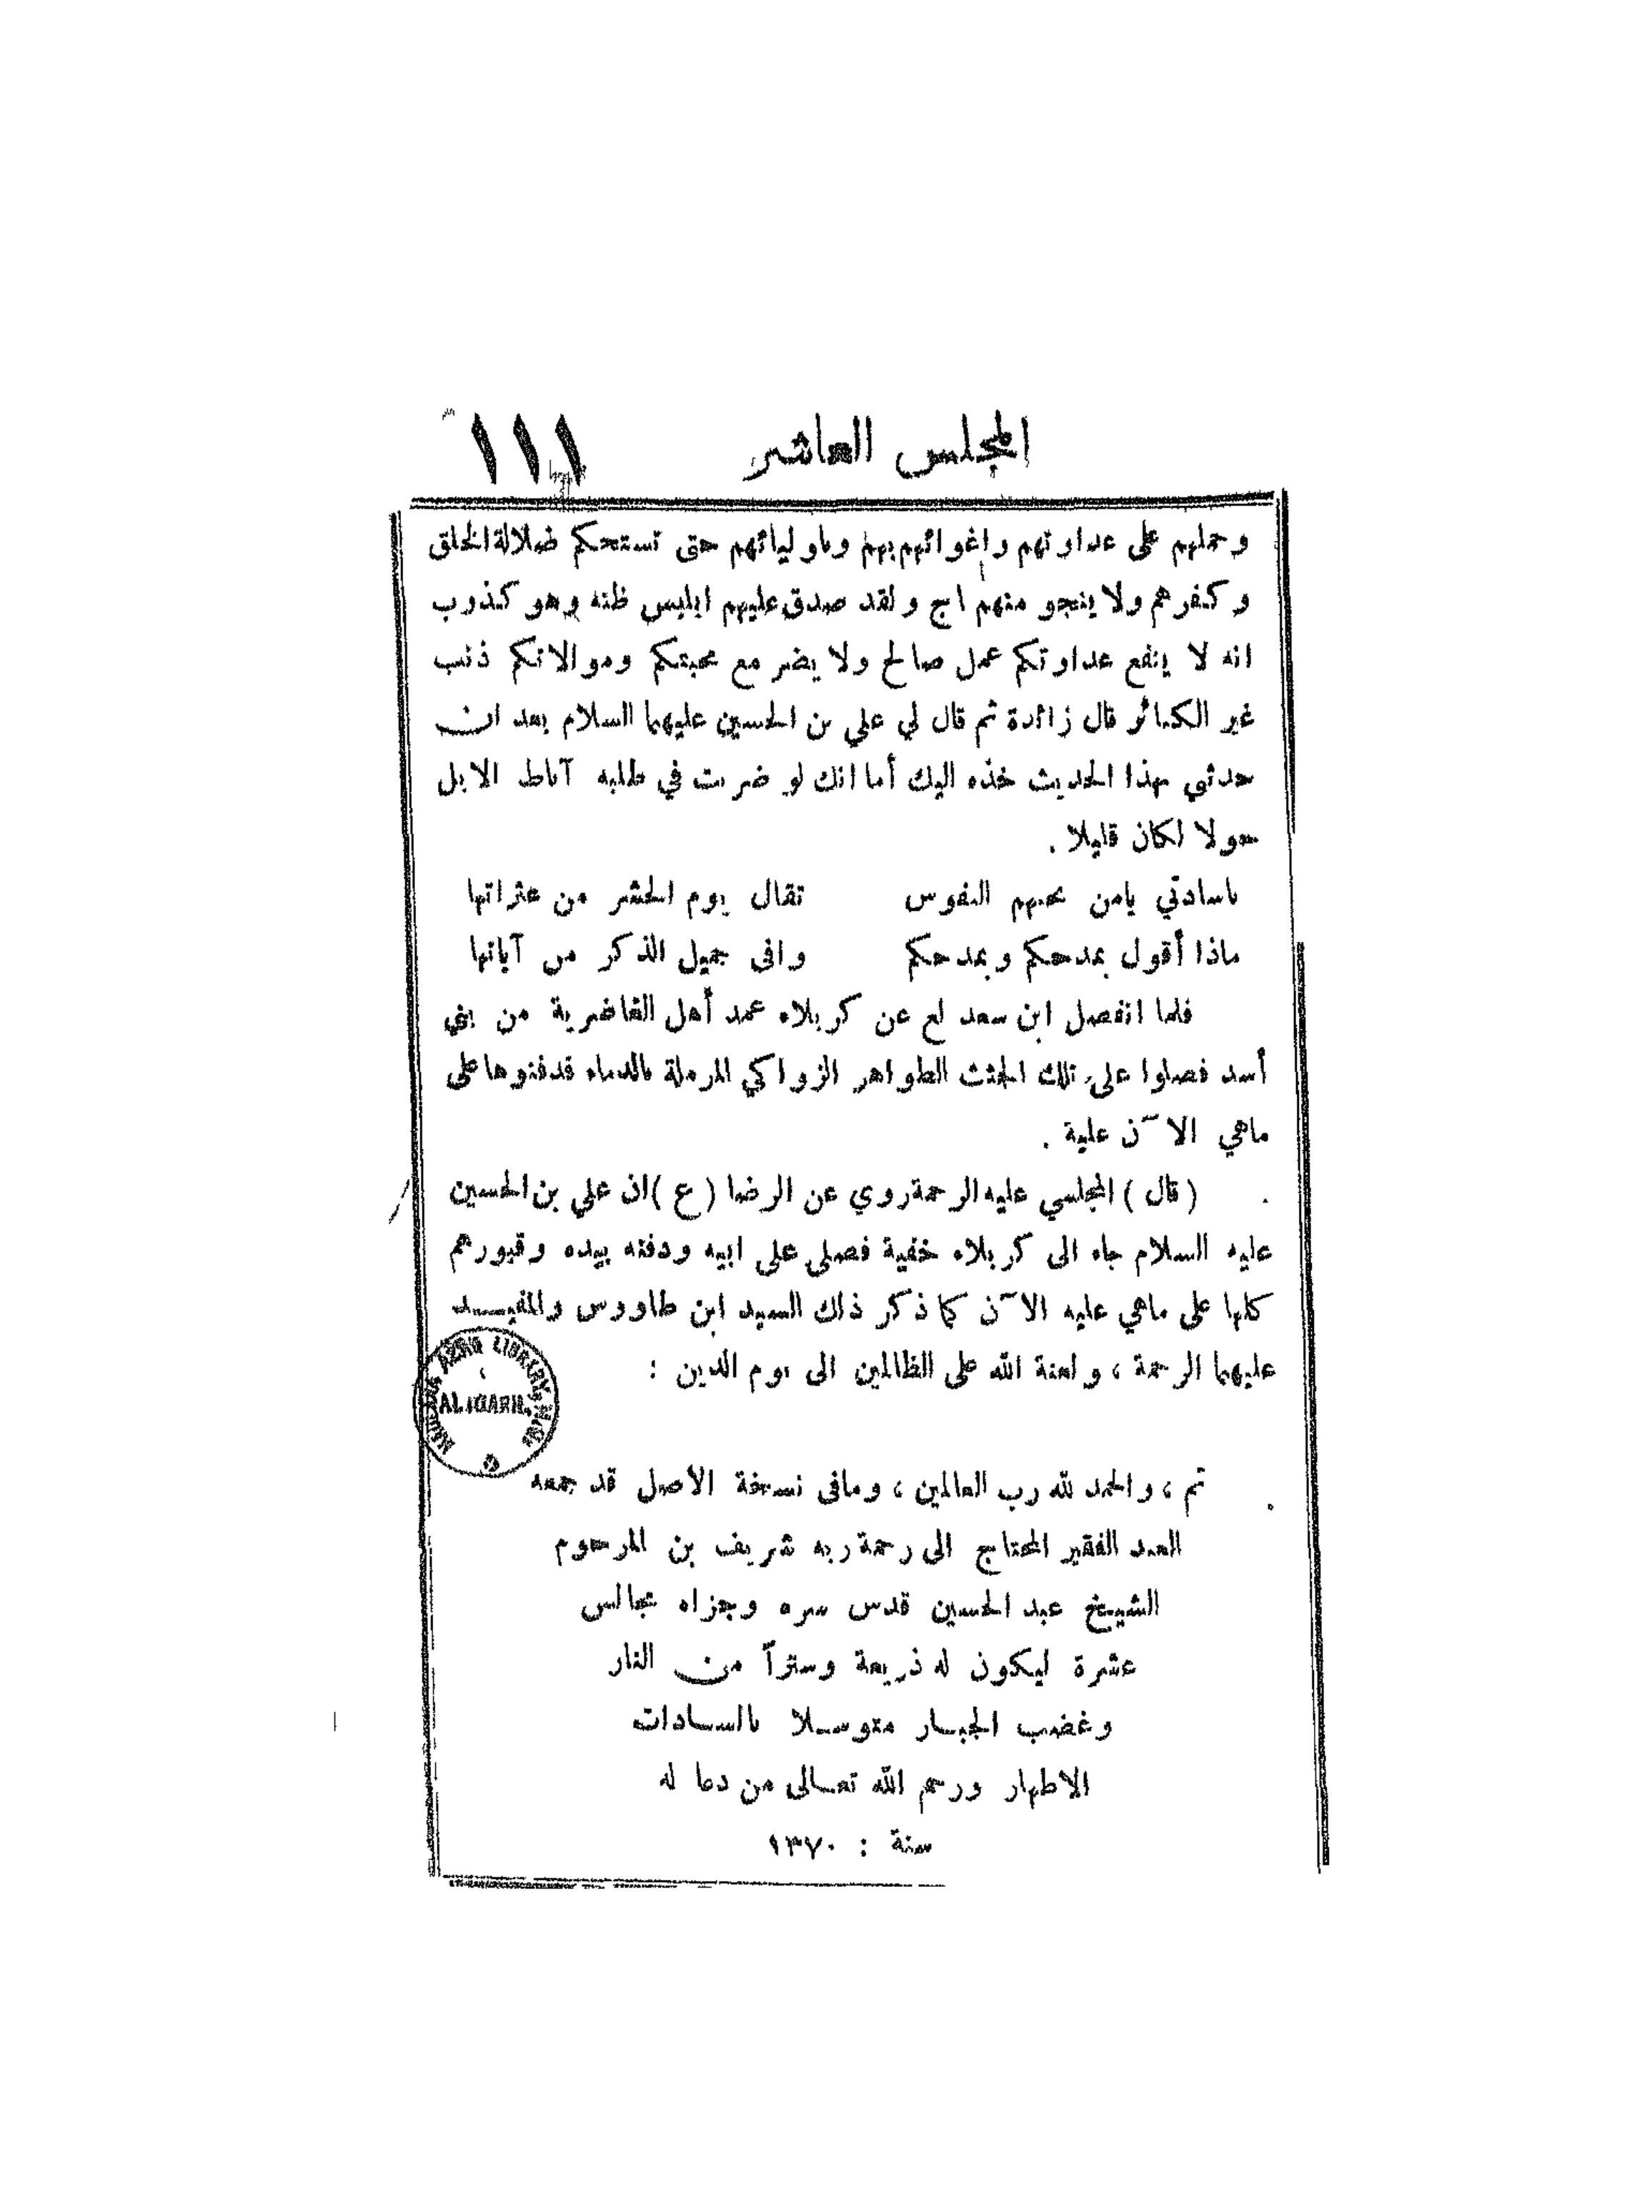 المجلس العاشر ١١١
وحملهم على عداوتهم واغوائهم بهم وباوليائهم حتى تستحكم ضلالة الخلق
وكفرهم ولا ينجو منهم اج ولقد صدق عليهم ابليس ظنه وهو كذوب
انه لا ينفع عداوتكم عمل صالح ولا يضر مع محبتكم وموالاتكم ذنب
غير الكبائر قال زائدة ثم قال لي علي بن الحسين عليهما السلام بعد ان
حدثني بهذا الحديث خذه اليك أما انك لو ضربت في طلبه آباط الابل
حولا لكان قليلا .
ياسادتي يامن بحبهم النفوس تقال يوم الحشر من عثراتها
ماذا أقول بمدحكم وبمدحكم وافى جميل الذكر من آياتها
فلما انفصل ابن سعد لع عن كربلاء عمد أهل الغاضرية من بني
أسد فصلوا على تلك الجثث الطواهر الزواكي المرملة بالدماء فدفنوها على
ماهي الآن علية .
( قال ) المجلسي عليه الرحمة روي عن الرضا ( ع ) ان علي بن الحسين
عليه السلام جاء الى كربلاء خفية فصلى على ابيه ودفنه بيده وقبورهم
كلها على ماهي عليه الآن كما ذكر ذلك السيد ابن طاووس والمفيد
عليهما الرحمة ، ولعنة الله على الظالمين الى يوم الدين :
AZAD LIBRARY
ALIGARH.
تم ، والحمد لله رب العالمين ، ومافى نسخة الأصل قد جمعه
العبد الفقير المحتاج الى رحمة ربه شريف بن المرحوم
الشيخ عبد الحسين قدس سره وجزاه مجالس
عشرة ليكون له ذريعة وستراً من النار
وغضب الجبار متوسلا بالسادات
الاطهار ورحم الله تعالى من دعا له
سنة : ١٣٧٠